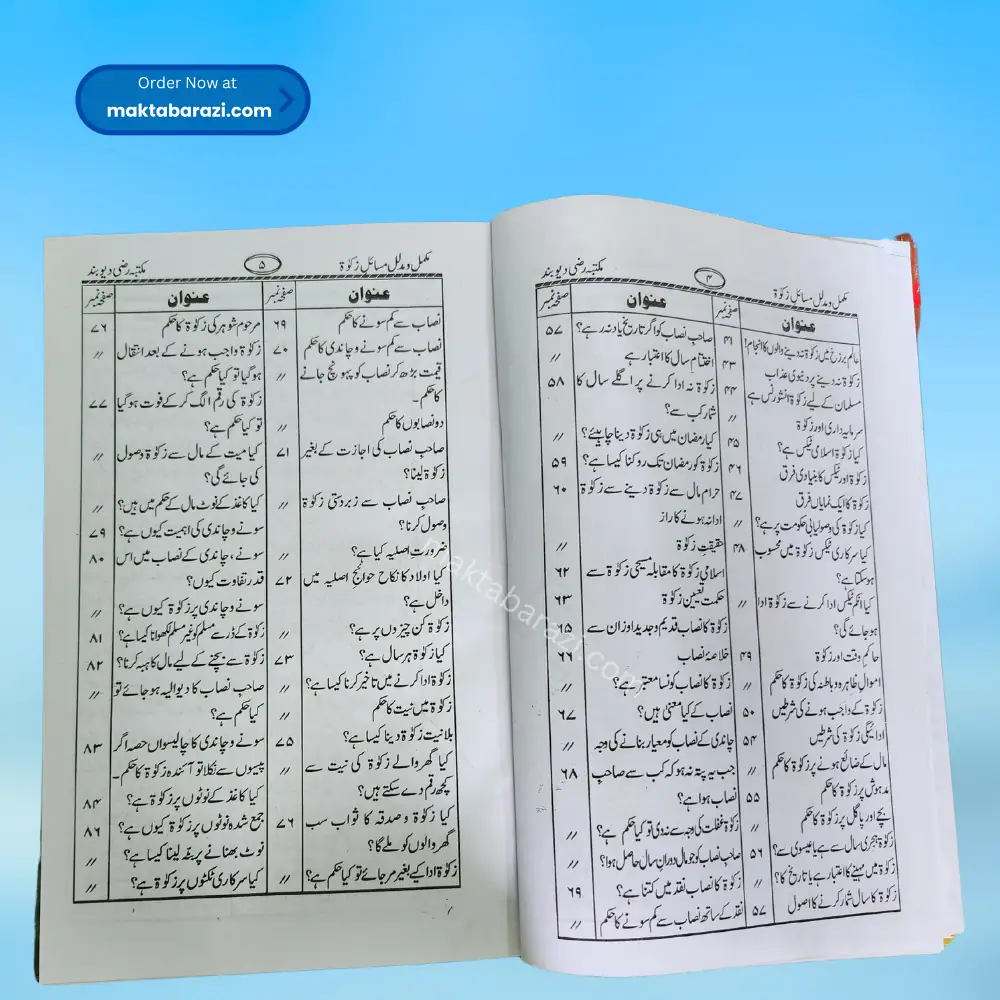 Order Now at
maktabarazi.com
مکمل و مدلل مسائل زکوٰۃ ۴ مکتبہ رضی دیوبند
عنوان صفحہ نمبر
عالم برزخ میں زکوٰۃ نہ دینے والوں کا انجام! ۴۱
زکوٰۃ نہ دینے پر دنیوی عذاب ۴۳
مسلمان کے لیے زکوٰۃ انشورنس ہے ۴۴
سرمایہ داری اور زکوٰۃ //
کیا زکوٰۃ اسلامی ٹیکس ہے؟ ۴۵
زکوٰۃ اور ٹیکس کا بنیادی فرق ۴۶
زکوٰۃ کا ایک نمایاں فرق ۴۷
کیا زکوٰۃ کی وصولیابی حکومت پر ہے؟ //
کیا سرکاری ٹیکس زکوٰۃ میں محسوب ۴۸
ہوسکتا ہے؟
کیا انکم ٹیکس ادا کرنے سے زکوٰۃ ادا //
ہوجائے گی؟
حاکم وقت اور زکوٰۃ ۴۹
اموال ظاہرہ و باطنہ کی زکوٰۃ کا حکم //
زکوٰۃ کے واجب ہونے کی شرطیں ۵۰
ادائیگی زکوٰۃ کی شرطیں ۵۴
مال کے ضائع ہونے پر زکوٰۃ کا حکم //
مدہوش پر زکوٰۃ کا حکم ۵۵
بچے اور پاگل پر زکوٰۃ کا حکم //
زکوٰۃ ہجری سال سے ہے یا عیسوی سے؟ ۵۶
زکوٰۃ میں مہینے کا اعتبار ہے یا تاریخ کا؟ //
زکوٰۃ کا سال شمار کرنے کا اصول ۵۷
عنوان صفحہ نمبر
صاحب نصاب کو اگر تاریخ یاد نہ رہے؟ ۵۷
اختتام سال کا اعتبار ہے //
زکوٰۃ نہ ادا کرنے پر اگلے سال کا ۵۸
شمار کب سے؟
کیا رمضان میں ہی زکوٰۃ دینا چاہیئے؟ //
زکوٰۃ کو رمضان تک روکنا کیسا ہے؟ ۵۹
حرام مال سے زکوٰۃ دینے سے زکوٰۃ ۶۰
ادا نہ ہونے کا راز
حقیقتِ زکوٰۃ //
اسلامی زکوٰۃ کا مقابلہ مسیحی زکوٰۃ سے ۶۲
حکمت تعیین زکوٰۃ ۶۳
زکوٰۃ کا نصاب قدیم و جدید اوزان سے ۶۵
خلاصۂ نصاب ۶۶
زکوٰۃ کا نصاب کونسا معتبر ہے؟ //
نصاب کے کیا معنیٰ ہیں؟ ۶۷
چاندی کے نصاب کو معیار بنانے کی وجہ //
جب یہ پتہ نہ ہو کہ کب سے صاحبِ ۶۸
نصاب ہوا ہے؟
زکوٰۃ غفلت کی وجہ سے نہ دی تو کیا حکم ہے؟ //
صاحب نصاب کو جو مال دورانِ سال حاصل ہوا؟ //
زکوٰۃ کا نصاب نقد میں کتنا ہے؟ ۶۹
نقد کے ساتھ نصاب سے کم سونے کا حکم //
مکمل و مدلل مسائل زکوٰۃ ۵ مکتبہ رضی دیوبند
عنوان صفحہ نمبر
نصاب سے کم سونے کا حکم ۶۹
نصاب سے کم سونے و چاندی کا حکم ۷۰
قیمت بڑھ کر نصاب کو پہونچ جانے //
کا حکم۔
دو نصابوں کا حکم //
صاحب نصاب کی اجازت کے بغیر ۷۱
زکوٰۃ لینا؟
صاحب نصاب سے زبردستی زکوٰۃ //
وصول کرنا؟
ضرورت اصلیہ کیا ہے؟ //
کیا اولاد کا نکاح حوائج اصلیہ میں ۷۲
داخل ہے؟
زکوٰۃ کن چیزوں پر ہے؟ //
کیا زکوٰۃ ہر سال ہے؟ ۷۳
زکوٰۃ ادا کرنے میں تاخیر کرنا کیسا ہے؟ //
زکوٰۃ میں نیت کا حکم //
بلا نیت زکوٰۃ دینا کیسا ہے؟ ۷۵
کیا گھر والے زکوٰۃ کی نیت سے //
کچھ رقم دے سکتے ہیں؟
کیا زکوٰۃ و صدقہ کا ثواب سب ۷۶
گھر والوں کو ملے گا؟
زکوٰۃ ادا کیے بغیر مر جائے تو کیا حکم ہے؟ //
عنوان صفحہ نمبر
مرحوم شوہر کی زکوٰۃ کا حکم ۷۶
زکوٰۃ واجب ہونے کے بعد انتقال //
ہوگیا تو کیا حکم ہے؟
زکوٰۃ کی رقم الگ کر کے فوت ہوگیا ۷۷
تو کیا حکم ہے؟
کیا میت کے مال سے زکوٰۃ وصول //
کی جائے گی؟
کیا کاغذ کے نوٹ مال کے حکم میں ہیں؟ //
سونے و چاندی کی اہمیت کیوں ہے؟ ۷۹
سونے، چاندی کے نصاب میں اس ۸۰
قدر تفاوت کیوں؟
سونے و چاندی پر زکوٰۃ کیوں ہے؟ //
زکوٰۃ کے ڈر سے مسلم کو غیر مسلم لکھوانا کیسا ہے؟ ۸۱
زکوٰۃ سے بچنے کے لیے مال کا ہبہ کرنا؟ ۸۲
صاحب نصاب کا دیوالیہ ہوجائے تو //
کیا حکم ہے؟
سونے و چاندی کا چالیسواں حصہ اگر ۸۳
پیسوں سے نکلا تو آئندہ زکوٰۃ کا حکم۔
کیا کاغذ کے نوٹوں پر زکوٰۃ ہے؟ ۸۴
جمع شدہ نوٹوں پر زکوٰۃ کیوں ہے؟ ۸۶
نوٹ بھنانے پر بٹہ لینا کیسا ہے؟ //
کیا سرکاری ٹکٹوں پر زکوٰۃ ہے؟ //
maktabarazi.com